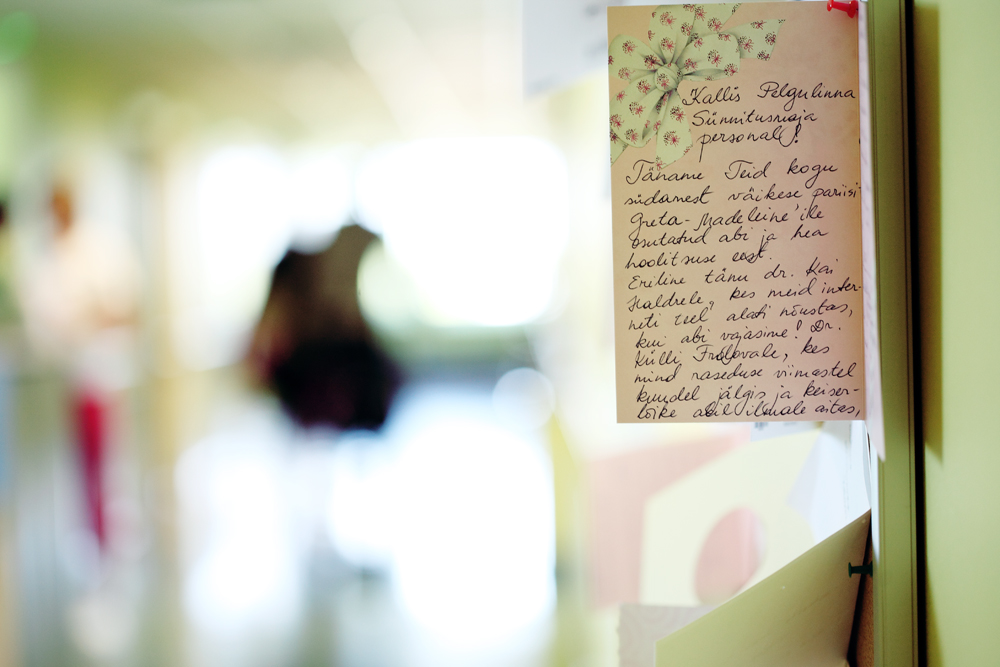 Kallis Pelgulinna
Sünnitusmaja
personal!
Täname Teid kogu
südamest väikese pariisi
Greta-Madeleine'ile
osutatud abi ja hea
hoolitsuse eest.
Eriline tänu dr. Kai
Haldrele, kes meid inter-
neti teel alati nõustas,
kui abi vajasime! Dr.
Külli Frolovale, kes
mind raseduse viimastel
kuudel jälgis ja keiser-
lõike abil ilmale aitas,